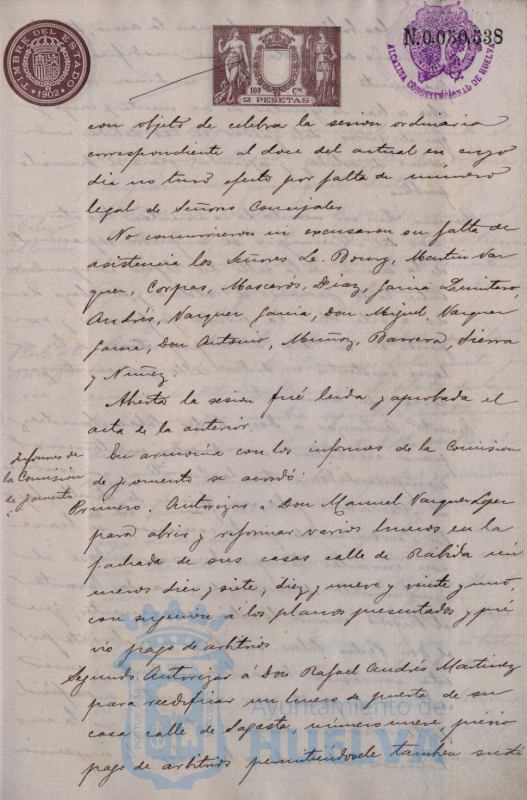 TIMBRE DEL ESTADO
1902
10ª Cª
2 PESETAS
N.0.050.538
ALCALDIA CONSTITUCIONAL DE HUELVA
con objeto de celebra la sesión ordinaria
correspondiente al doce del actual en cuyo
dia no tuvo efecto por falta de número
legal de Señores Concejales
No concurrieron ni excusaron su falta de
asistencia los Señores Le-Bourg, Martin Vaz
quez, Corpas, Mascarós, Diaz, Garcia Quintero,
Andrés, Vazquez Garcia, Don Miguel, Vazquez
Garcia, Don Antonio, Muñoz, Barrera, Sierra
y Nuñez.
Abierta la sesión fué leida y aprobada el
acta de la anterior.
Informes de
la Comision
de fomento
En armonia con los informes de la Comision
de fomento se acordó:
Primero. Autorizar á Don Manuel Vazquez Lopez
para abrir y reformar varios huecos en la
fachada de sus casas calle de Rábida nú
meros diez y siete, diez y nueve y veinte y uno,
con sujecion á los planos presentados y pré
vio pago de arbitrios
Segundo. Autorizar á Don Rafael Andrés Martinez
para reedificar un hueco de puerta de su
casa calle de Sagasta, número nueve, prévio
pago de arbitrios permitiéndosele tambien susti
Ayuntamiento de
HUELVA